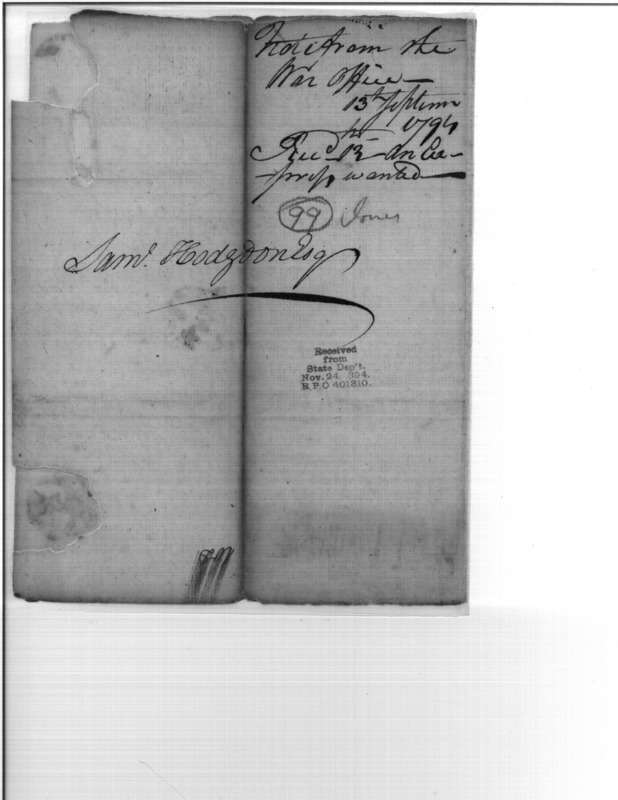 Note from the
War Office
13th Septem
1794
Recd 13 - an Ex-
-press wanted
99 Jones
Saml. Hodgdon Esq
Received
from
State Dep't.
Nov. 24. 894.
R.P.O 401310.